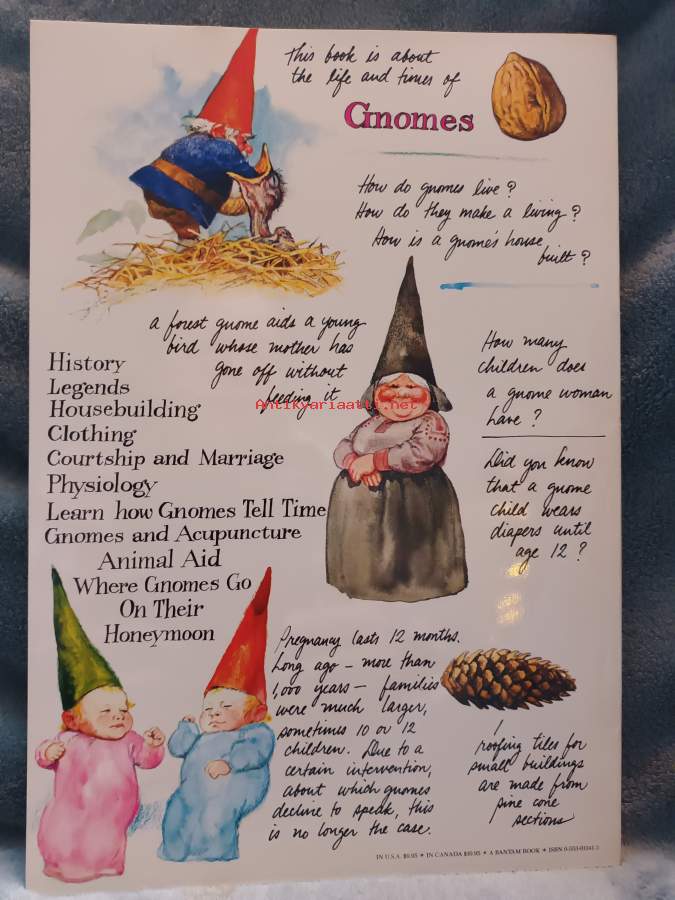 This book is about
the life and times of
Gnomes
How do gnomes live?
How do they make a living?
How is a gnome's house
built?
a forest gnome aids a young
bird whose mother has
gone off without
feeding it
Antikvariaatti.net
How many
children does
a gnome woman
have?
Did you know
that a gnome
child wears
diapers until
age 12?
History
Legends
Housebuilding
Clothing
Courtship and Marriage
Physiology
Learn how Gnomes Tell Time
Gnomes and Acupuncture
Animal Aid
Where Gnomes Go
On Their
Honeymoon
Pregnancy lasts 12 months.
Long ago – more than
1,000 years – families
were much larger,
sometimes 10 or 12
children. Due to a
certain intervention,
about which gnomes
decline to speak, this
is no longer the case.
roofing tiles for
small buildings
are made from
pine cone
sections
IN U.S.A. $9.95 * IN CANADA $10.95 * A BANTAM BOOK * ISBN